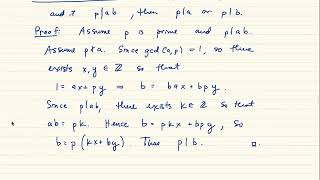 and if p|ab, then p|a or p|b.
Proof: Assume p is prime and p|ab.
Assume p∤a. Since gcd(a,p) = 1, so there
exists x,y ∈ ℤ so that
1 = ax + py ⇒ b = bax + bpy.
Since p|ab, there exists k ∈ ℤ so that
ab = pk. Hence b = pkx + bpy, so
b = p(kx + by). Thus p|b. □.